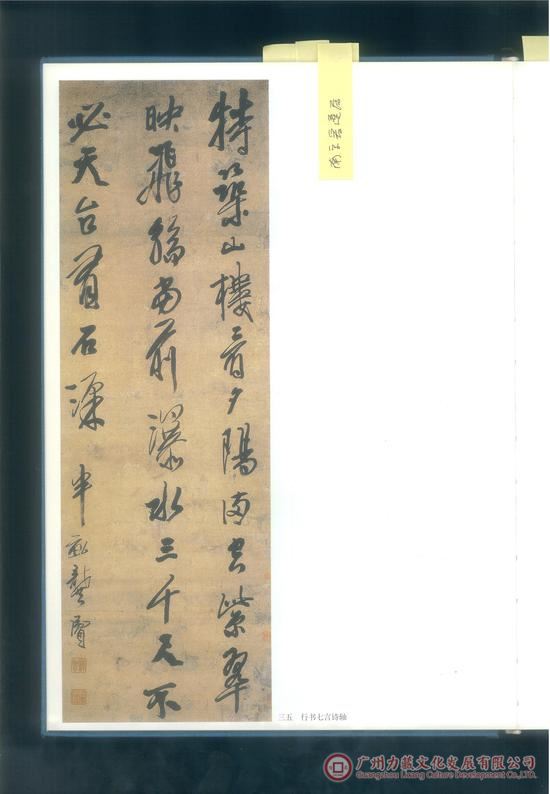 特築山樓看夕陽滿空紫翠
映飛觴當前瀑水三千尺不
必天台看石梁 半畝龔賢
三五 行书七言诗轴
广州力藏文化发展有限公司
Guangzhou Culture Development Co.,Ltd